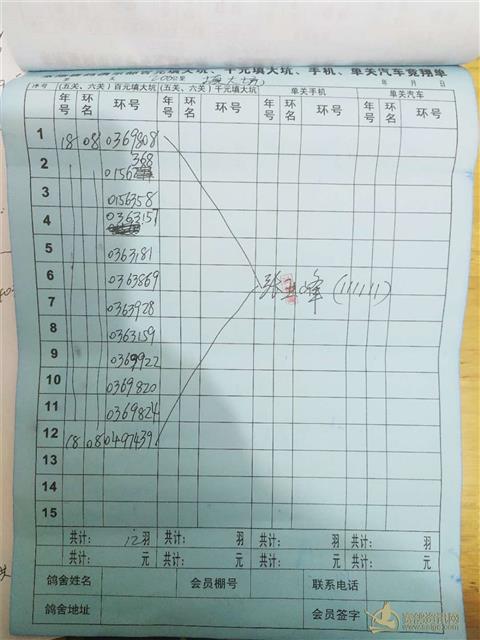 填大坑、千元填大坑、手机、单关汽车竞翔单
序号 (五关、六关)百元填大坑 (五关、六关)千元填大坑 单关手机 单关汽车
年号 环名 环号 年号 环名 环号 年号 环名 环号 年号 环名 环号
1 18 08 0369808
2 368
3 0156358
4 0363157
5 0363181
6 0363869 张 峰(111111)
7 0363928
8 0363159
9 0369922
10 0369820
11 0369824
12 18 08 0497439
13
14
15
共计: 12 羽 共计: 羽 共计: 羽 共计: 羽
共计: 元 共计: 元 共计: 元 共计: 元
鸽舍姓名 会员棚号 联系电话
鸽舍地址 会员签字